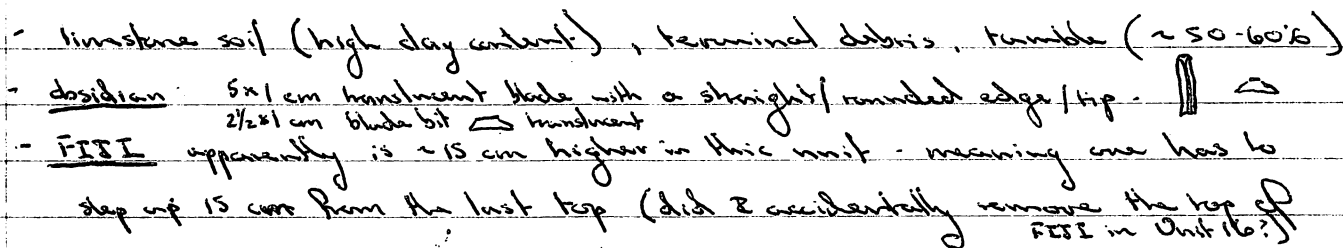 - limestone soil (high clay content), terminal debris, rumble (~50-60%)
- obsidian: 5x1 cm translucent blade with a straight/rounded edge/tip.
2½x1 cm blade bit translucent
- FIJI apparently is ~15 cm higher in this unit - meaning one has to
step up 15 cm from the last top (did I accidentally remove the top of
FIJI in Unit 16?)